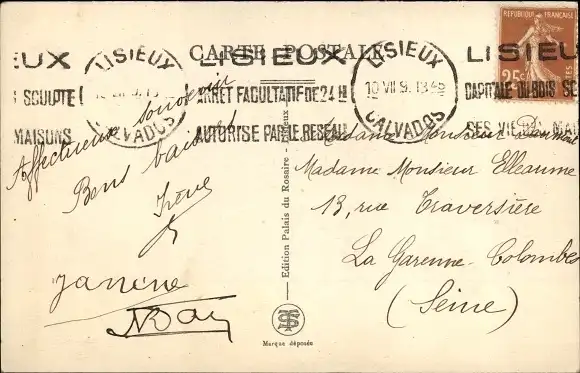 CARTE POSTALE
LISIEUX
LISIEUX
LISIEUX
LISIEUX
CALVADOS
10 VII 9. 13 45
CALVADOS
SCULPTE
MAISONS
ARRET FACULTATIF DE 24 H
AUTORISE PAR LE RESEAU
LISIEUX
CAPITALE DU BOIS SC
SES VIEILL MAI
REPUBLIQUE FRANÇAISE
25c
Affectueux souvenir
Bons baisers
Irène
Janine
Edition Palais du Rosaire - Lisieux
Madame Monsieur
Madame Monsieur Elleaume
13, rue Traversière
La Garenne-Colombes
(Seine)
Marque déposée